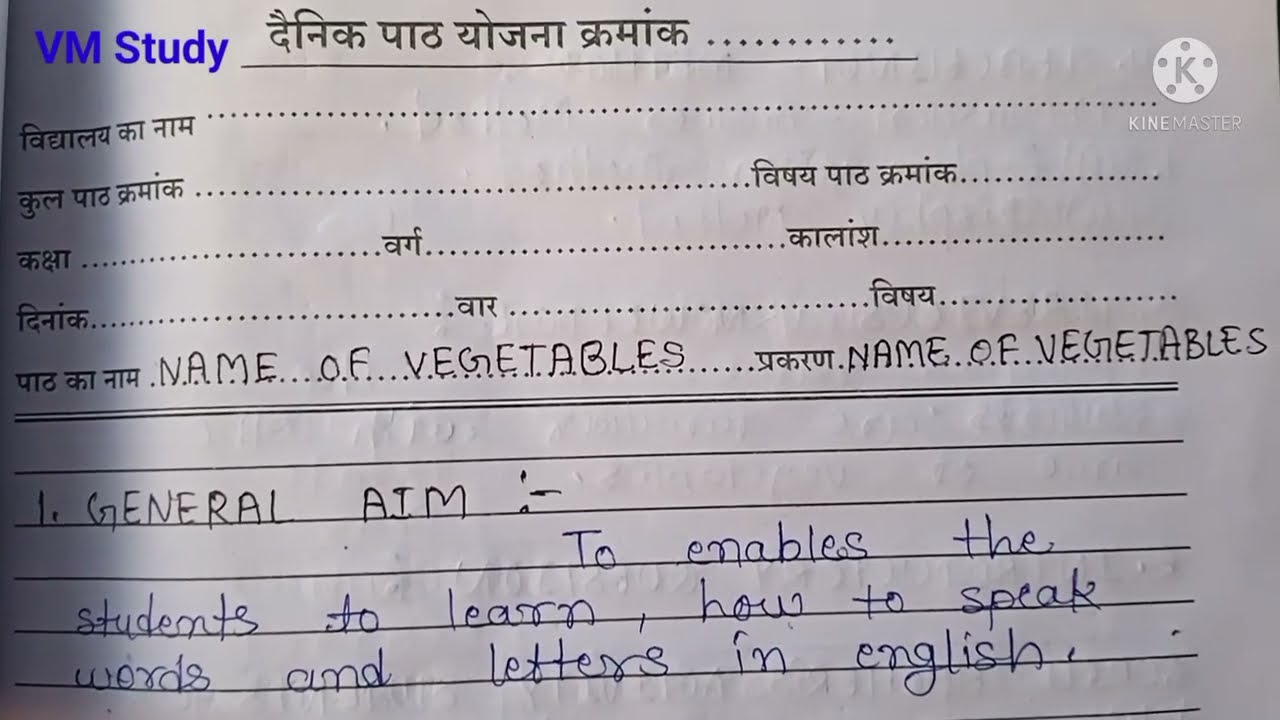 VM Study
दैनिक पाठ योजना क्रमांक ............
KINEMASTER
विद्यालय का नाम ................................................................
कुल पाठ क्रमांक ................................................विषय पाठ क्रमांक..................
कक्षा ..........................वर्ग...............................कालांश........................
दिनांक...............................वार ...............................विषय.....................
पाठ का नाम .NAME...OF...VEGETABLES......प्रकरण.NAME.OF.VEGETABLES
1. GENERAL AIM :-
To enables the
students to learn, how to speak
words and letters in english.